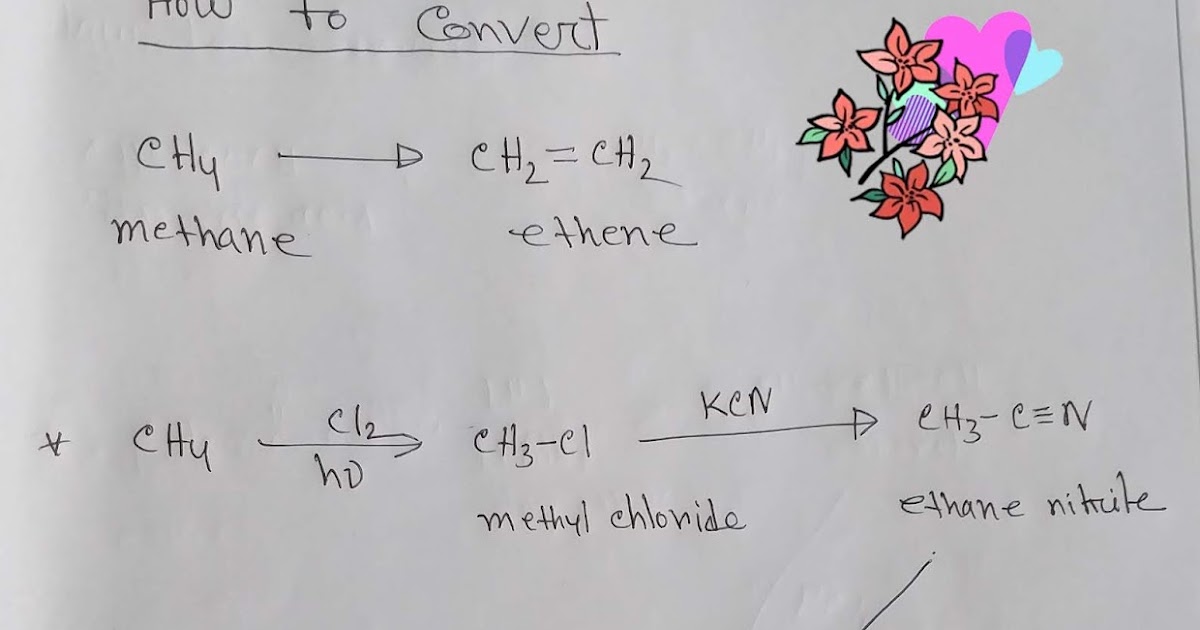 How to Convert
CH4 → CH2=CH2
methane ethene
* CH4 Cl2 hν → CH3-Cl KCN → CH3-C≡N
methyl chloride ethane nitrite